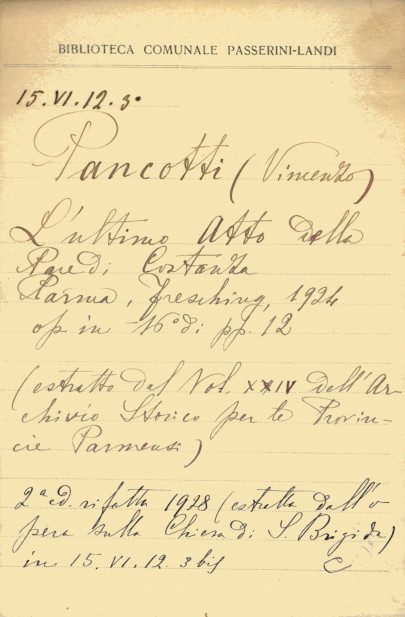 BIBLIOTECA COMUNALE PASSERINI-LANDI
15.VI.12.3°
Pancotti (Vincenzo)
L'ultimo Atto della
Pace di Costanza
Parma, Fresching, 1924
op. in -16° di pp. 12
(estratto dal Vol. XXIV dell'Ar-
chivio Storico per le Provin-
cie Parmensi)
2ª ed. rifatta 1928 (estratta dall'o-
pera sulla Chiesa di S. Brigida)
in 15.VI.12.3 bis